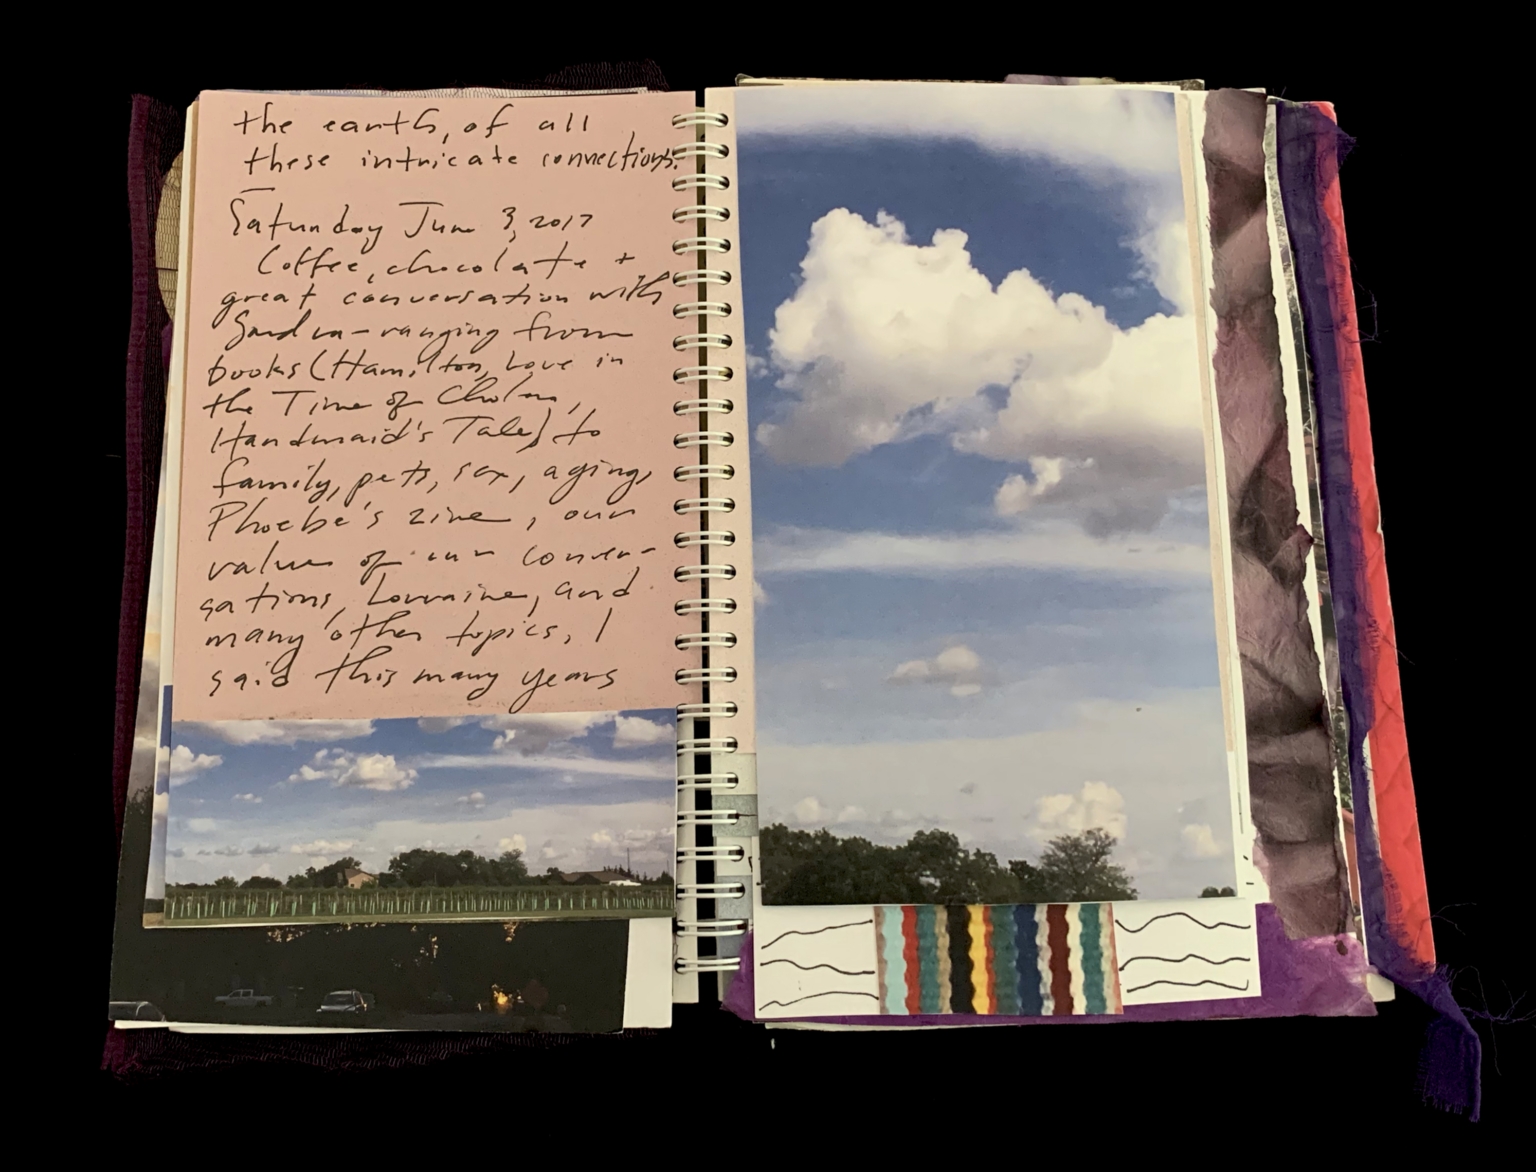 the earth, of all
these intricate connections.
—
Saturday June 3, 2017
Coffee, chocolate +
great conversation with
Sandra - ranging from
books (Hamilton, Love in
the Time of Cholera,
Handmaid's Tale) to
family, pets, sex, aging,
Phoebe's zine, our
values of our conver-
sations, Lorraine, and
many other topics, I
said this many years